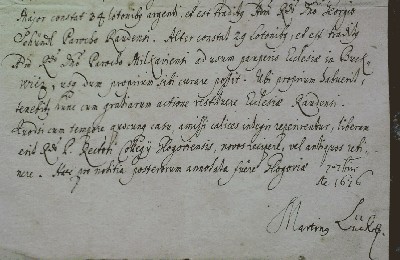 Maior constat 24 lotonibus argenti, et est traditus Adm. Rdo Dno Georgio
Parocho Randensi. Alter constat 29 lotonibus, et est traditus
Adm Rdo Dno Parocho ad usum pauperis Ecclesiae in
usq dum proprium sibi curare possit. Ubi proprium habuerit,
tenebitur hunc cum gratiarum actione restituere Ecclesiae Randensi.
Quodsi cum tempore quocunq casu amissi calices integri reperirentur, liberum
erit Rdo P. Rectori Collegij Glogoviensis, novos recipere, vel antiquos reti-
nere. Haec pro notitia posterorum annotata fuere Glogoviae 7-7bris
Ao 1676
Martinus